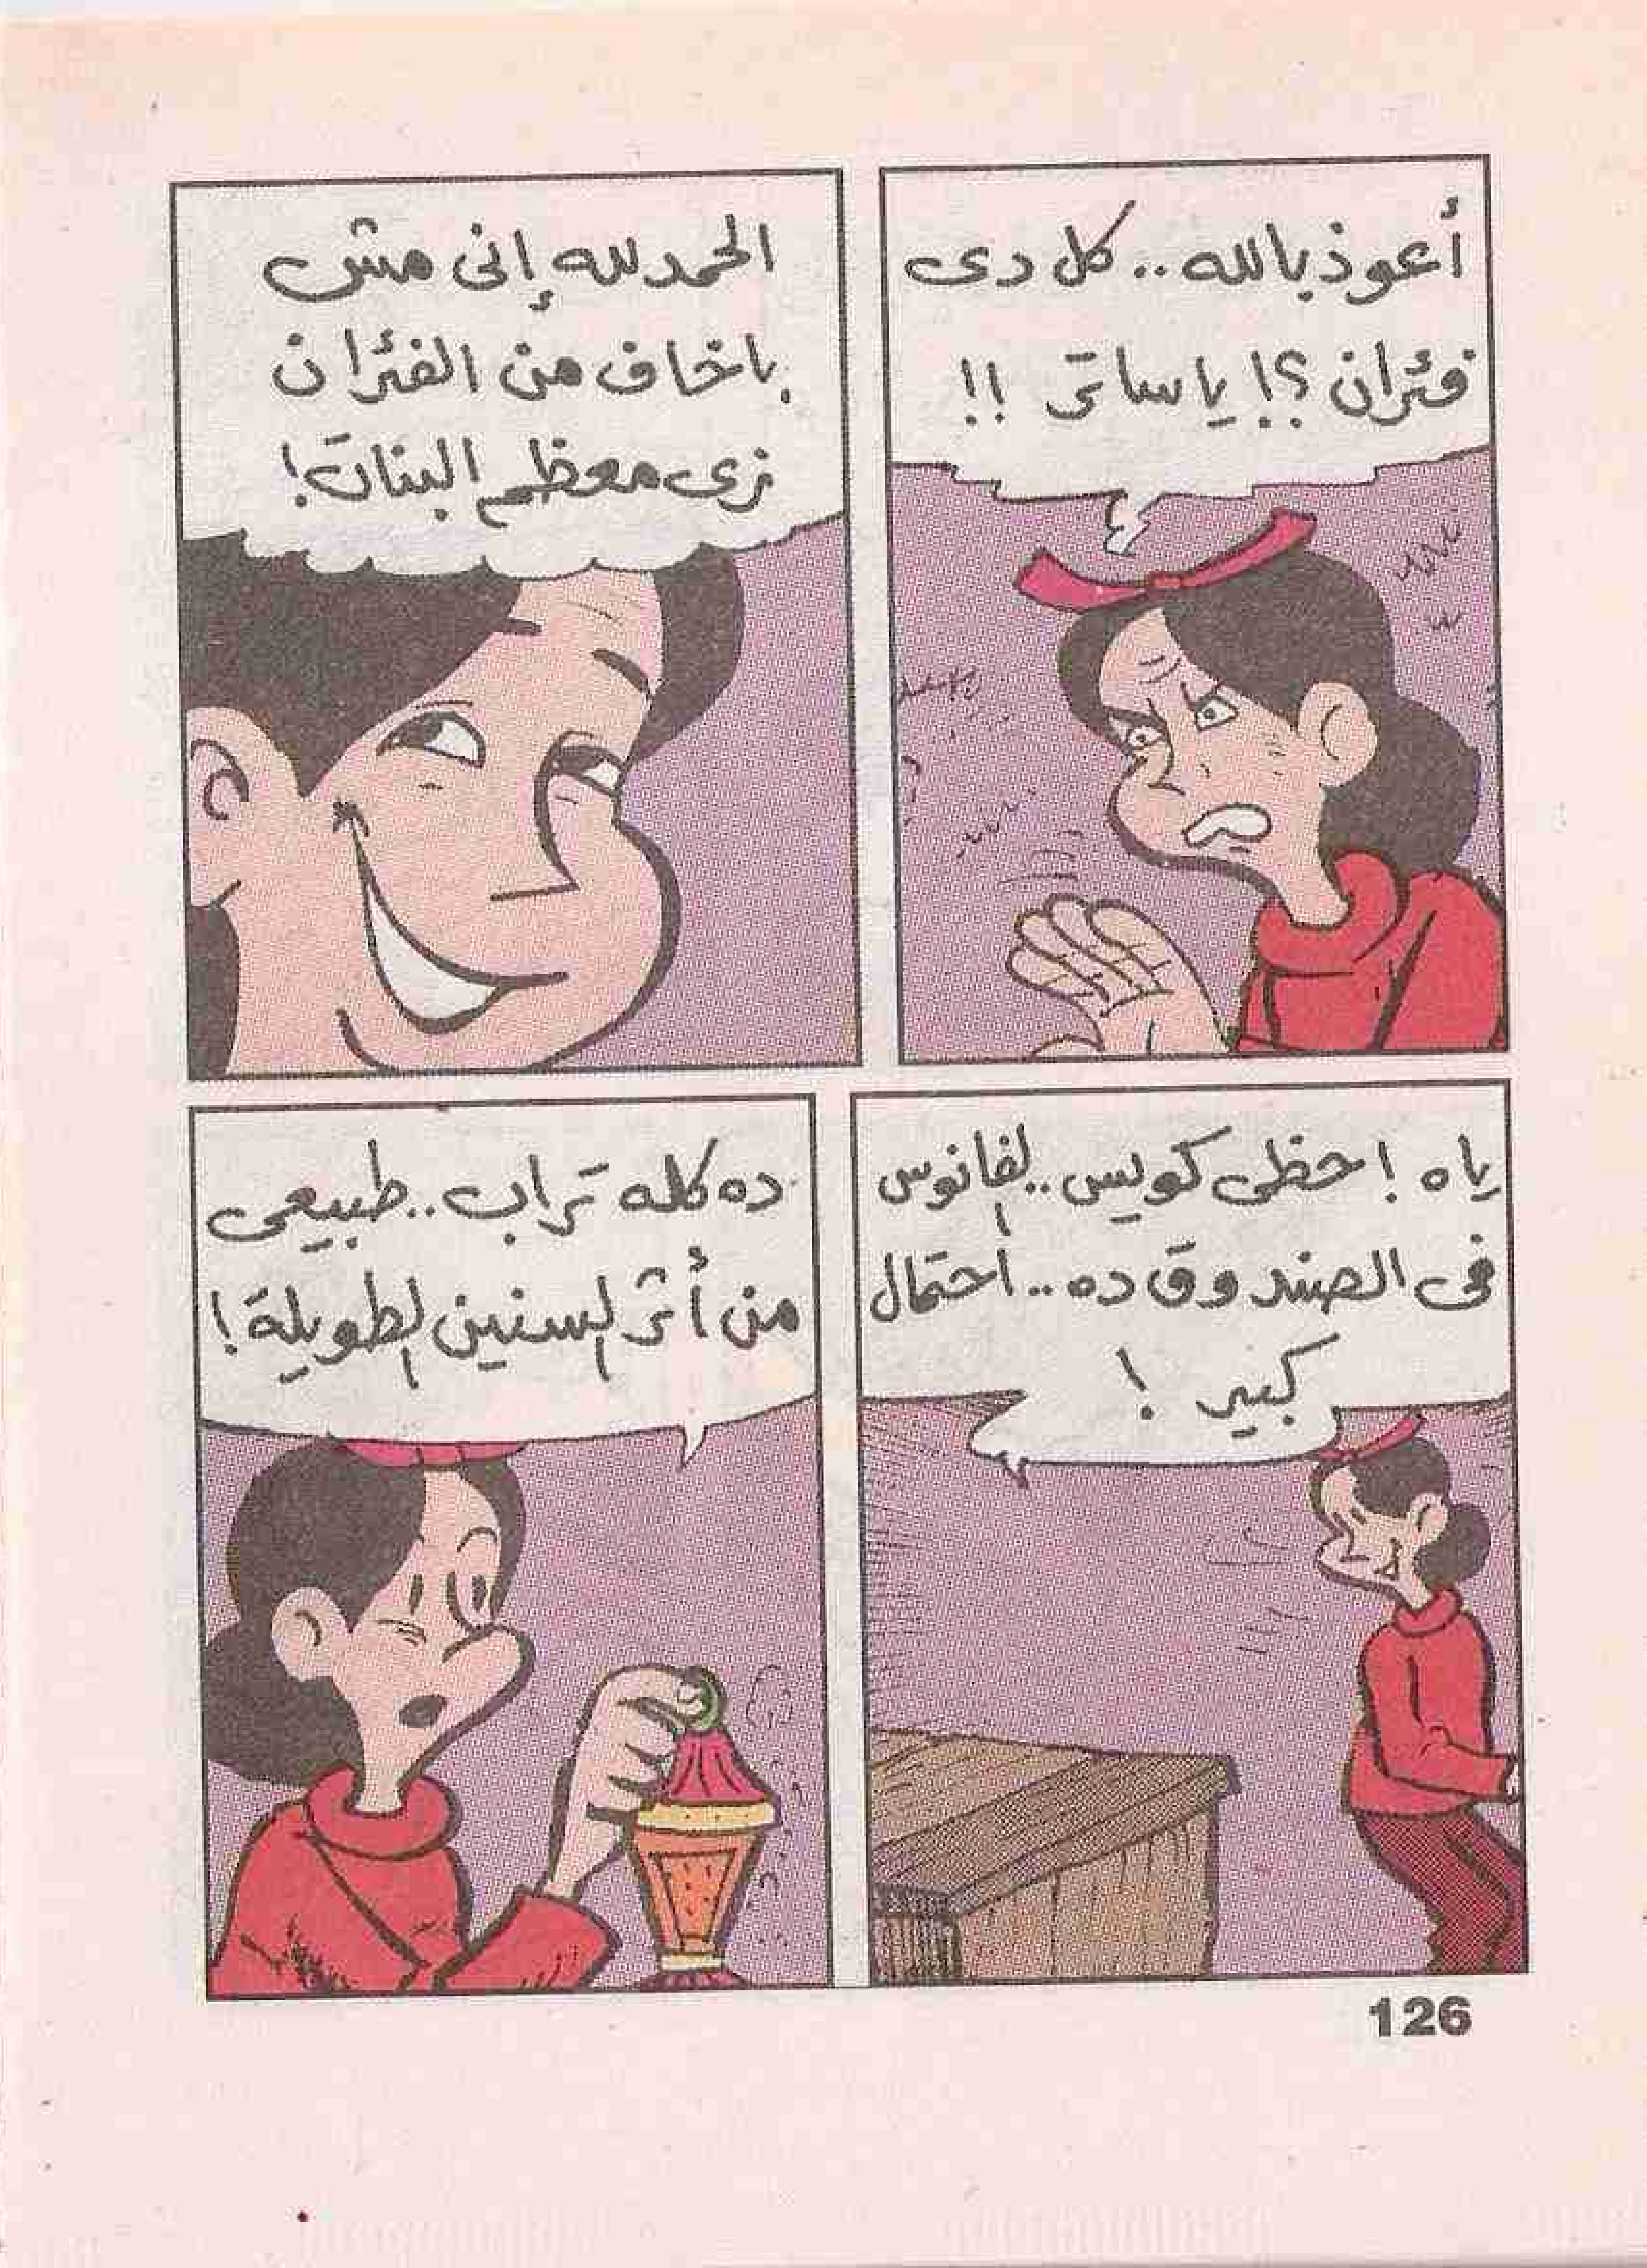 أعوذ بالله.. كل دى
فئران؟! يا ساتر !!
الحمد لله إنى مش
باخاف من الفئران
زى معظم البنات!
ياه ! حظى كويس.. الفانوس
فى الصندوق ده.. احتمال
كبير !
ده كله تراب.. طبيعى
من أثر السنين الطويلة!
126